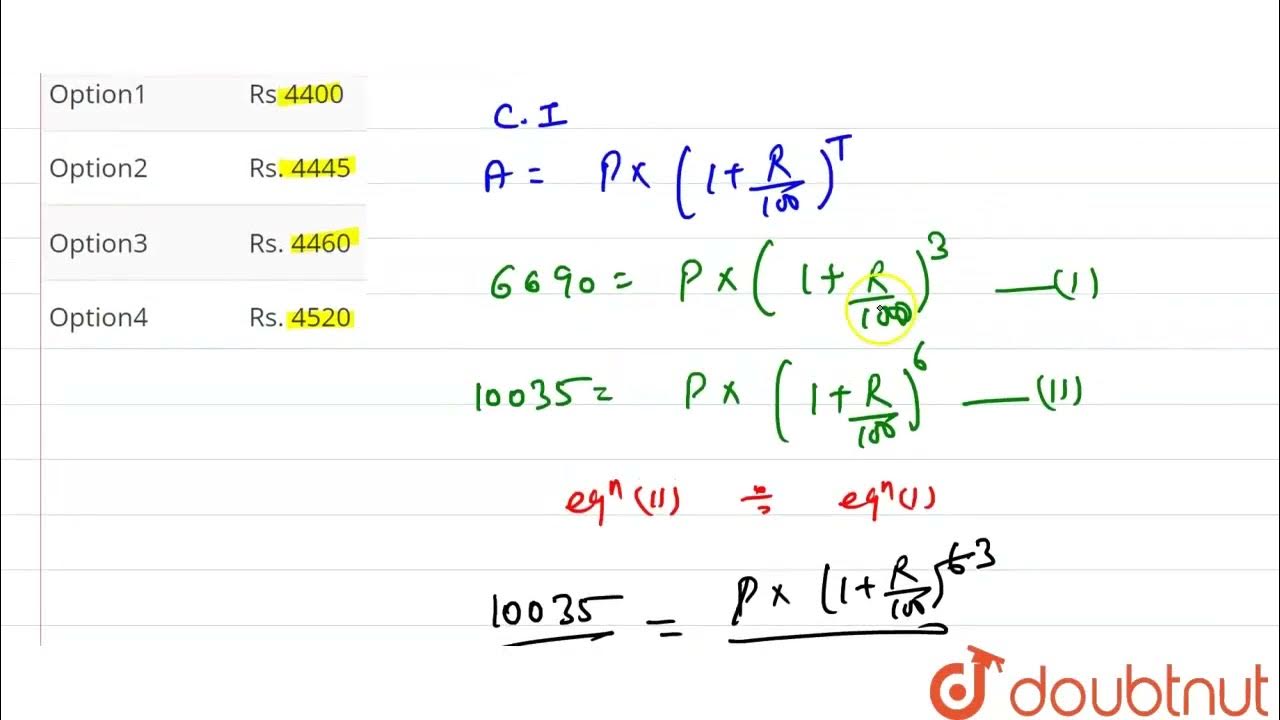 Option1 Rs 4400
Option2 Rs. 4445
Option3 Rs. 4460
Option4 Rs. 4520
C.I
A = P× (1+R/100)^T
6690 = P×(1+R/1000)^3 —(I)
10035 = P× (1+R/100)^6 —(II)
eqⁿ(II) ÷ eqⁿ(I)
10035 = P× (1+R/100)^6-3
doubtnut